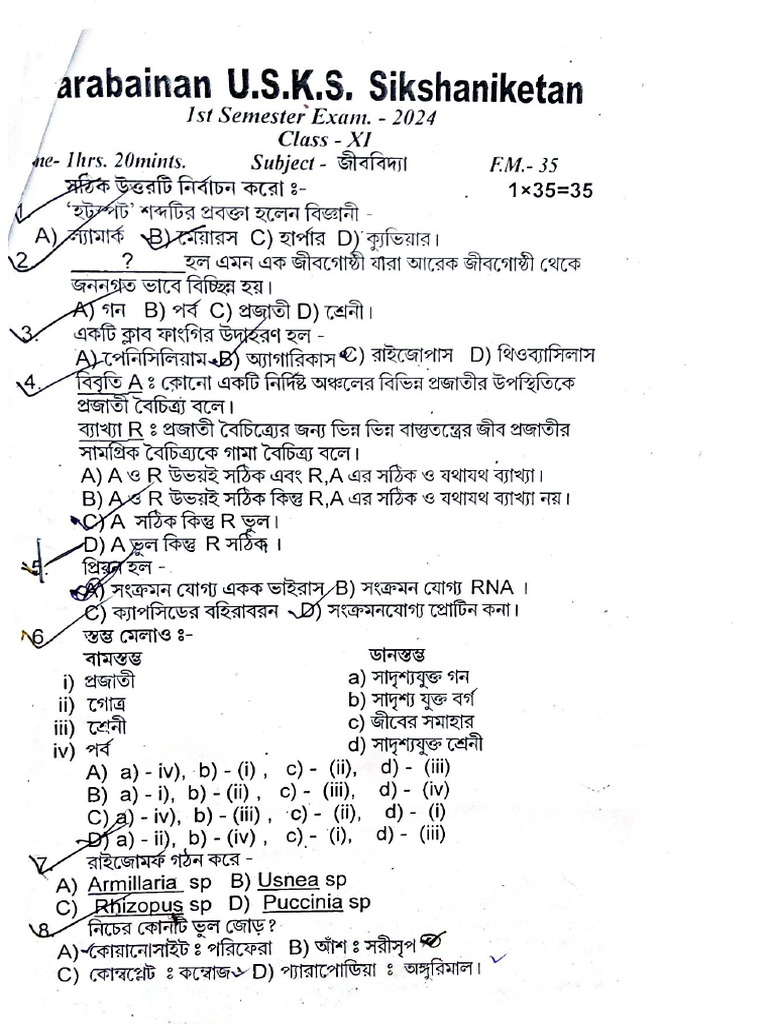 arabainan U.S.K.S. Sikshaniketan
1st Semester Exam. - 2024
Class - XI
me- 1hrs. 20mints. Subject - জীববিদ্যা F.M.- 35
সঠিক উত্তরটি নির্বাচন করো ঃ- 1×35=35
1. 'হটস্পট' শব্দটির প্রবক্তা হলেন বিজ্ঞানী -
A) ল্যামার্ক B) মেয়ারস C) হার্পার D) ক্যুভিয়ার।
2. ______?______ হল এমন এক জীবগোষ্ঠী যারা আরেক জীবগোষ্ঠী থেকে
জননগত ভাবে বিচ্ছিন্ন হয়।
A) গন B) পর্ব C) প্রজাতী D) শ্রেনী।
3. একটি ক্লাব ফাংগির উদাহরণ হল -
A) পেনিসিলিয়াম B) অ্যাগারিকাস C) রাইজোপাস D) থিওব্যাসিলাস
4. বিবৃতি A ঃ কোনো একটি নির্দিষ্ট অঞ্চলের বিভিন্ন প্রজাতীর উপস্থিতিকে
প্রজাতী বৈচিত্র্য বলে।
ব্যাখ্যা R ঃ প্রজাতী বৈচিত্র্যের জন্য ভিন্ন ভিন্ন বাস্তুতন্ত্রের জীব প্রজাতীর
সামগ্রিক বৈচিত্র্যকে গামা বৈচিত্র্য বলে।
A) A ও R উভয়ই সঠিক এবং R,A এর সঠিক ও যথাযথ ব্যাখ্যা।
B) A ও R উভয়ই সঠিক কিন্তু R,A এর সঠিক ও যথাযথ ব্যাখ্যা নয়।
C) A সঠিক কিন্তু R ভুল।
D) A ভুল কিন্তু R সঠিক।
5. প্রিয়ন হল -
A) সংক্রমন যোগ্য একক ভাইরাস B) সংক্রমন যোগ্য RNA ।
C) ক্যাপসিডের বহিরাবরন D) সংক্রমনযোগ্য প্রোটিন কনা।
6 স্তম্ভ মেলাও ঃ-
বামস্তম্ভ ডানস্তম্ভ
i) প্রজাতী a) সাদৃশ্যযুক্ত গন
ii) গোত্র b) সাদৃশ্য যুক্ত বর্গ
iii) শ্রেনী c) জীবের সমাহার
iv) পর্ব d) সাদৃশ্যযুক্ত শ্রেনী
A) a) - iv), b) - (i) , c) - (ii), d) - (iii)
B) a) - i), b) - (ii) , c) - (iii), d) - (iv)
C) a) - iv), b) - (iii) , c) - (ii), d) - (i)
D) a) - ii), b) - (iv) , c) - (i), d) - (iii)
7. রাইজোমর্ফ গঠন করে -
A) Armillaria sp B) Usnea sp
C) Rhizopus sp D) Puccinia sp
8. নিচের কোনটি ভুল জোড়?
A) কোয়ানোসাইট ঃ পরিফেরা B) আঁশ ঃ সরীসৃপ
C) কোম্বপ্লেট ঃ কম্বোজ D) প্যারাপোডিয়া ঃ অঙ্গুরিমাল।